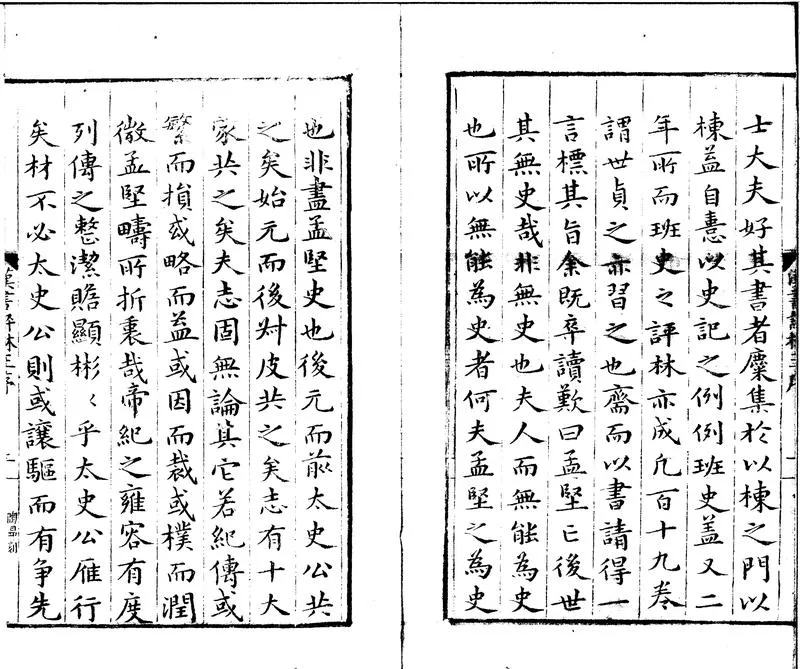 士大夫好其書者麇集於以棟之門以
棟益自憙以史記之例例班史蓋又二
年所而班史之評林亦成凢百十九卷
謂世貞之亦習之也齎而以書請得一
言標其旨余既卒讀歎曰孟堅亡後世
其無史哉非無史也夫人而無能為史
也所以無能為史者何夫孟堅之為史
漢書評林王序
二
也非盡孟堅史也後元而前太史公共
之矣始元而後叔皮共之矣志有十大
家共之矣夫志固無論其它若紀傳或
繁而損或略而益或因而裁或樸而潤
微孟堅疇所折衷哉帝紀之雍容有度
列傳之整潔贍顯彬〻乎太史公雁行
矣材不必太史公則或讓驅而有争先
漢書評林王序